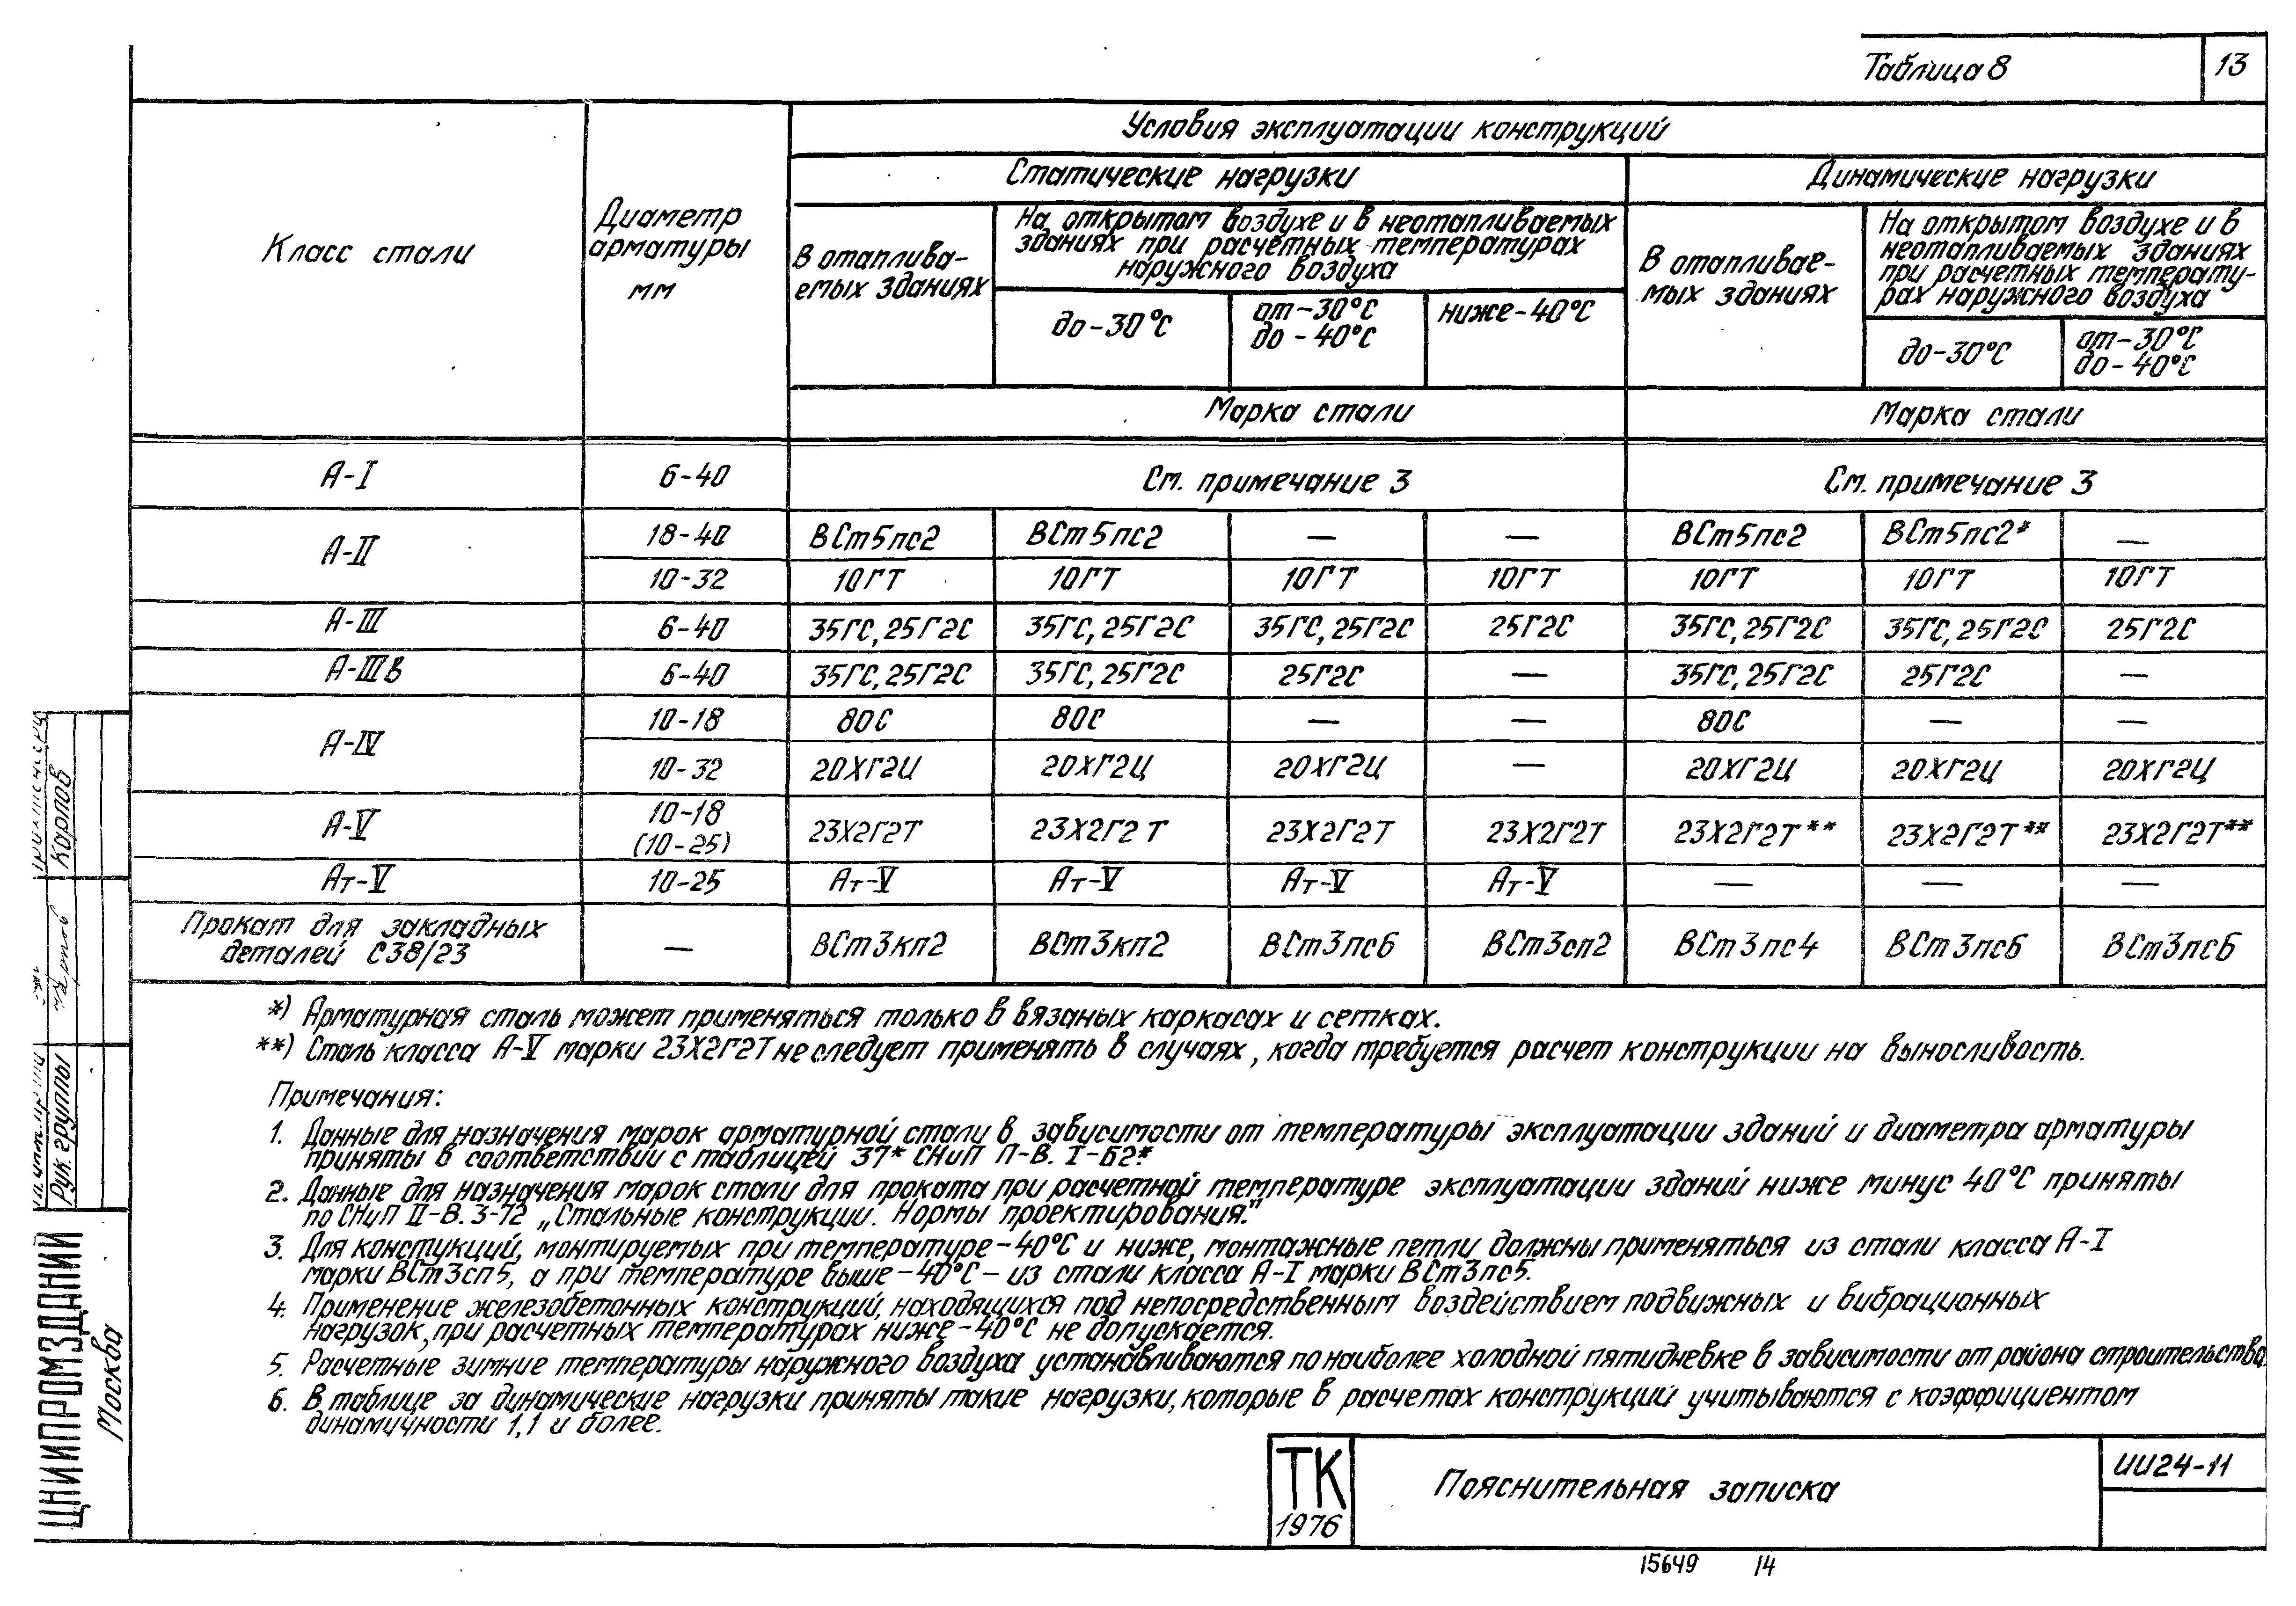 Таблица 8
13
Класс стали
Диаметр
арматуры
мм
Условия эксплуатации конструкций
Статические нагрузки
Динамические нагрузки
В отаплива-
емых зданиях
На открытом воздухе и в неотапливаемых
зданиях при расчетных температурах
наружного воздуха
до-30°С
от-30°С
до-40°С
ниже-40°С
В отапливае-
мых зданиях
На открытом воздухе и в
неотапливаемых зданиях
при расчетных температу-
рах наружного воздуха
до-30°С
от-30°С
до-40°С
Марка стали
Марка стали
А-I 6-40 См. примечание 3 См. примечание 3
А-II
18-40 ВСт5пс2 ВСт5пс2 — — ВСт5пс2 ВСт5пс2* —
10-32 10ГТ 10ГТ 10ГТ 10ГТ 10ГТ 10ГТ 10ГТ
А-III 6-40 35ГС,25Г2С 35ГС,25Г2С 35ГС,25Г2С 25Г2С 35ГС,25Г2С 35ГС,25Г2С 25Г2С
А-IIIв 6-40 35ГС,25Г2С 35ГС,25Г2С 25Г2С — 35ГС,25Г2С 25Г2С —
А-IV
10-18 80С 80С — — 80С — —
10-32 20ХГ2Ц 20ХГ2Ц 20ХГ2Ц — 20ХГ2Ц 20ХГ2Ц 20ХГ2Ц
А-V
10-18
(10-25)
23Х2Г2Т 23Х2Г2Т 23Х2Г2Т 23Х2Г2Т 23Х2Г2Т** 23Х2Г2Т** 23Х2Г2Т**
Ат-V 10-25 Ат-V Ат-V Ат-V Ат-V — — —
Прокат для закладных
деталей С38/23
— ВСт3кп2 ВСт3кп2 ВСт3пс6 ВСт3сп2 ВСт3пс4 ВСт3пс6 ВСт3пс6
*) Арматурная сталь может применяться только в вязаных каркасах и сетках.
**) Сталь класса А-V марки 23Х2Г2Т не следует применять в случаях, когда требуется расчет конструкции на выносливость.
Примечания:
1. Данные для назначения марок арматурной стали в зависимости от температуры эксплуатации зданий и диаметра арматуры
приняты в соответствии с таблицей 37* СНиП П-В. I-62*.
2. Данные для назначения марок стали для проката при расчетной температуре эксплуатации зданий ниже минус 40°С приняты
по СНиП II-В. 3-72 „Стальные конструкции. Нормы проектирования."
3. Для констукций, монтируемых при температуре-40°С и ниже, монтажные петли должны применяться из стали класса А-I
марки ВСт3сп5, а при температуре выше-40°С-из стали класса А-I марки ВСт3пс5.
4. Применение железобетонных конструкций, находящихся под непосредственным воздействием подвижных и вибрационных
нагрузок, при расчетных температурах ниже-40°С не допускается.
5. Расчетные зимние температуры наружного воздуха устанавливаются по наиболее холодной пятидневке в зависимости от района строительства
6. В таблице за динамические нагрузки приняты такие нагрузки, которые в расчетах конструкций учитываются с коэффициентом
динамичности 1,1 и более.
Карпов
Рук. группы
ЦНИИПРОМЗДАНИЙ
Москва
ТК
1976
Пояснительная записка
ИИ24-11
15649 14